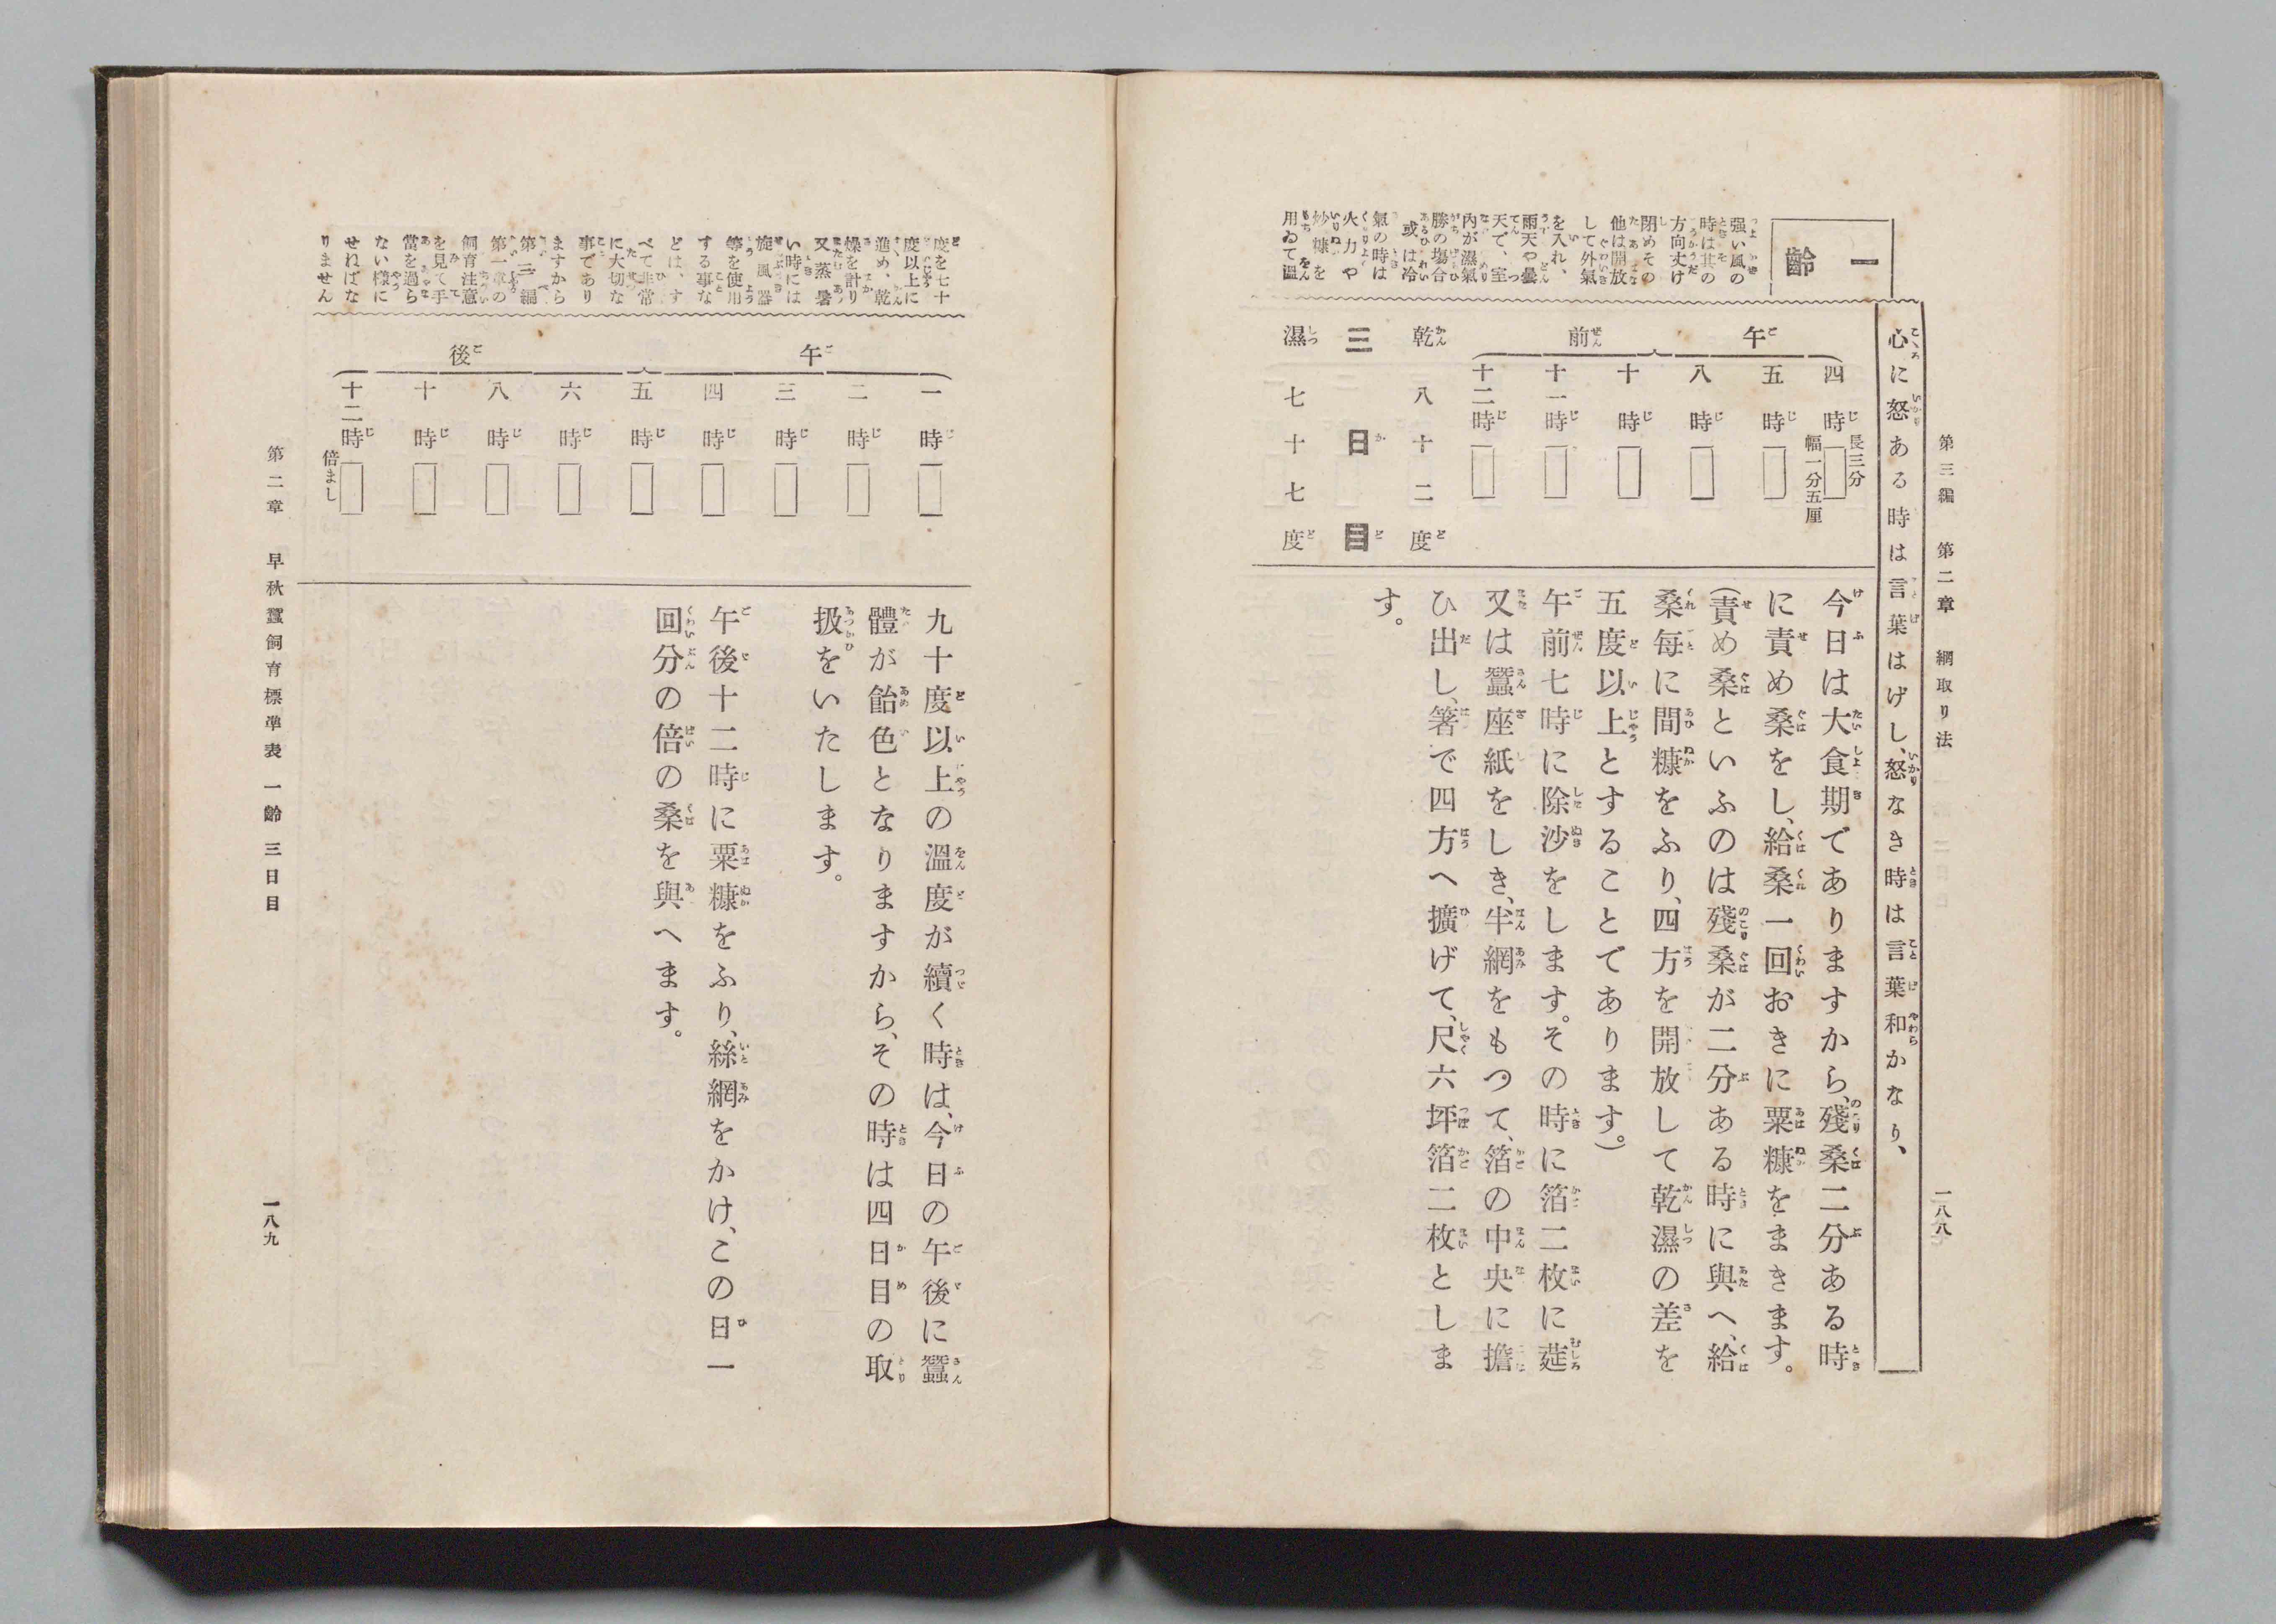 第三編　第二章　網取り法
一八八
心に怒ある時は言葉はげし、怒なき時は言葉和かなり、
一齡
强い風の
時は其の
方向丈け
閉めその
他は開放
して外氣
を入れ、
雨天や曇
天で、室
內が濕氣
勝の塲合
或は冷
氣の時は
火力や
炒糠を
用ゐて溫
午前
四時　長三分　幅一分五厘
五時
八時
十時
十一時
十二時
乾　八十二度
三日目
濕　七十七度
今日は大食期でありますから、殘桑二分ある時
に責め桑をし、給桑一回おきに粟糠をまきます。
（責め桑といふのは殘桑が二分ある時に與へ、給
桑每に間糠をふり、四方を開放して乾濕の差を
五度以上とすることであります。）
午前七時に除沙をします。その時に箔二枚に莚
又は蠶座紙をしき、半網をもつて、箔の中央に擔
ひ出し、箸で四方へ擴げて、尺六坪箔二枚としま
す。
度を七十
度以上に
進め、乾
燥を計り
又蒸暑
い時には
旋風器
等を使用
する事な
どは、す
べて非常
に大切な
事であり
ますから
第三編
第一章の
飼育注意
を見て手
當を過ら
ない樣に
せればな
りません
午後
一時
二時
三時
四時
五時
六時
八時
十時
十二時　倍まし
九十度以上の溫度が續く時は、今日の午後に蠶
體が飴色となりますから、その時は四日目の取
扱をいたします。
午後十二時に粟糠をふり、絲網をかけ、この日一
回分の倍の桑を與へます。
第二章　早秋蠶飼育標準表　一齡　三日目
一八九